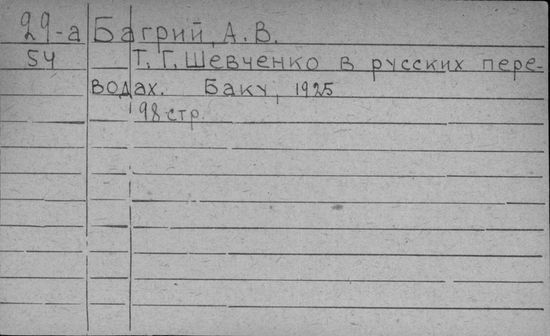 29-а Багрий, А. В.
54 Т. Г. Шевченко в русских пере-
водах. Баку, 1925
98 стр.